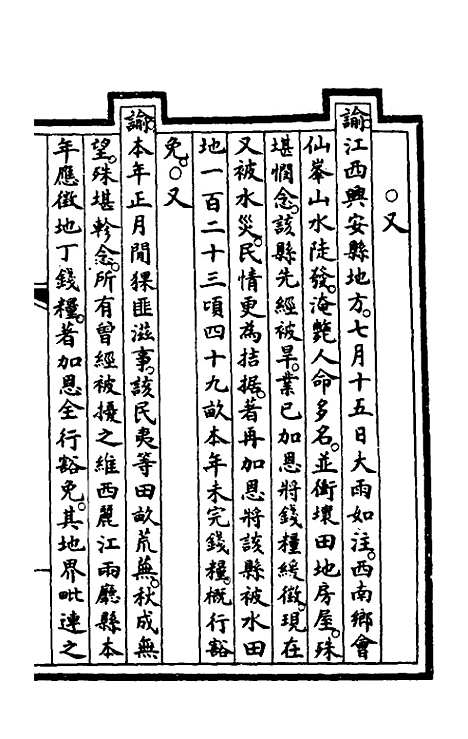 ○又
諭江西興安縣地方七月十五日大雨如注西南鄉會
仙峯山水陡發淹斃人命多名並衝壞田地房屋殊
堪憫念該縣先經被旱業已加恩將錢糧緩徵現在
又被水災民情更為拮据著再加恩將該縣被水田
地一百二十三頃四十九畝本年未完錢糧概行豁
免○又
諭本年正月間猓匪滋事該民夷等田畝荒蕪秋成無
望殊堪軫念所有曾經被擾之維西麗江兩廳縣本
年應徵地丁錢糧著加恩全行豁免其地界毗連之